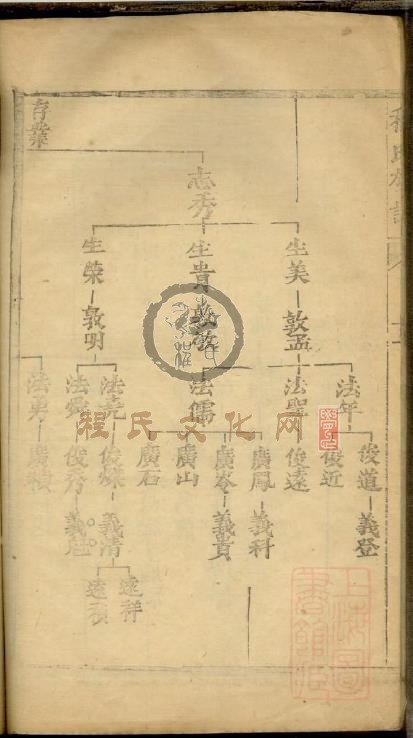 程氏族譜
存業
志秀
生美
生貴
生榮
敦孟
敦敬
敦明
法年
法聖
法儒
法堯
法舜
法勇
俊道
俊近
俊遠
廣鳳
廣岑
廣山
廣石
俊秀
廣積
義登
義科
義貴
義清
義魁
遠祥
遠積
程氏文化网
上海圖書館藏